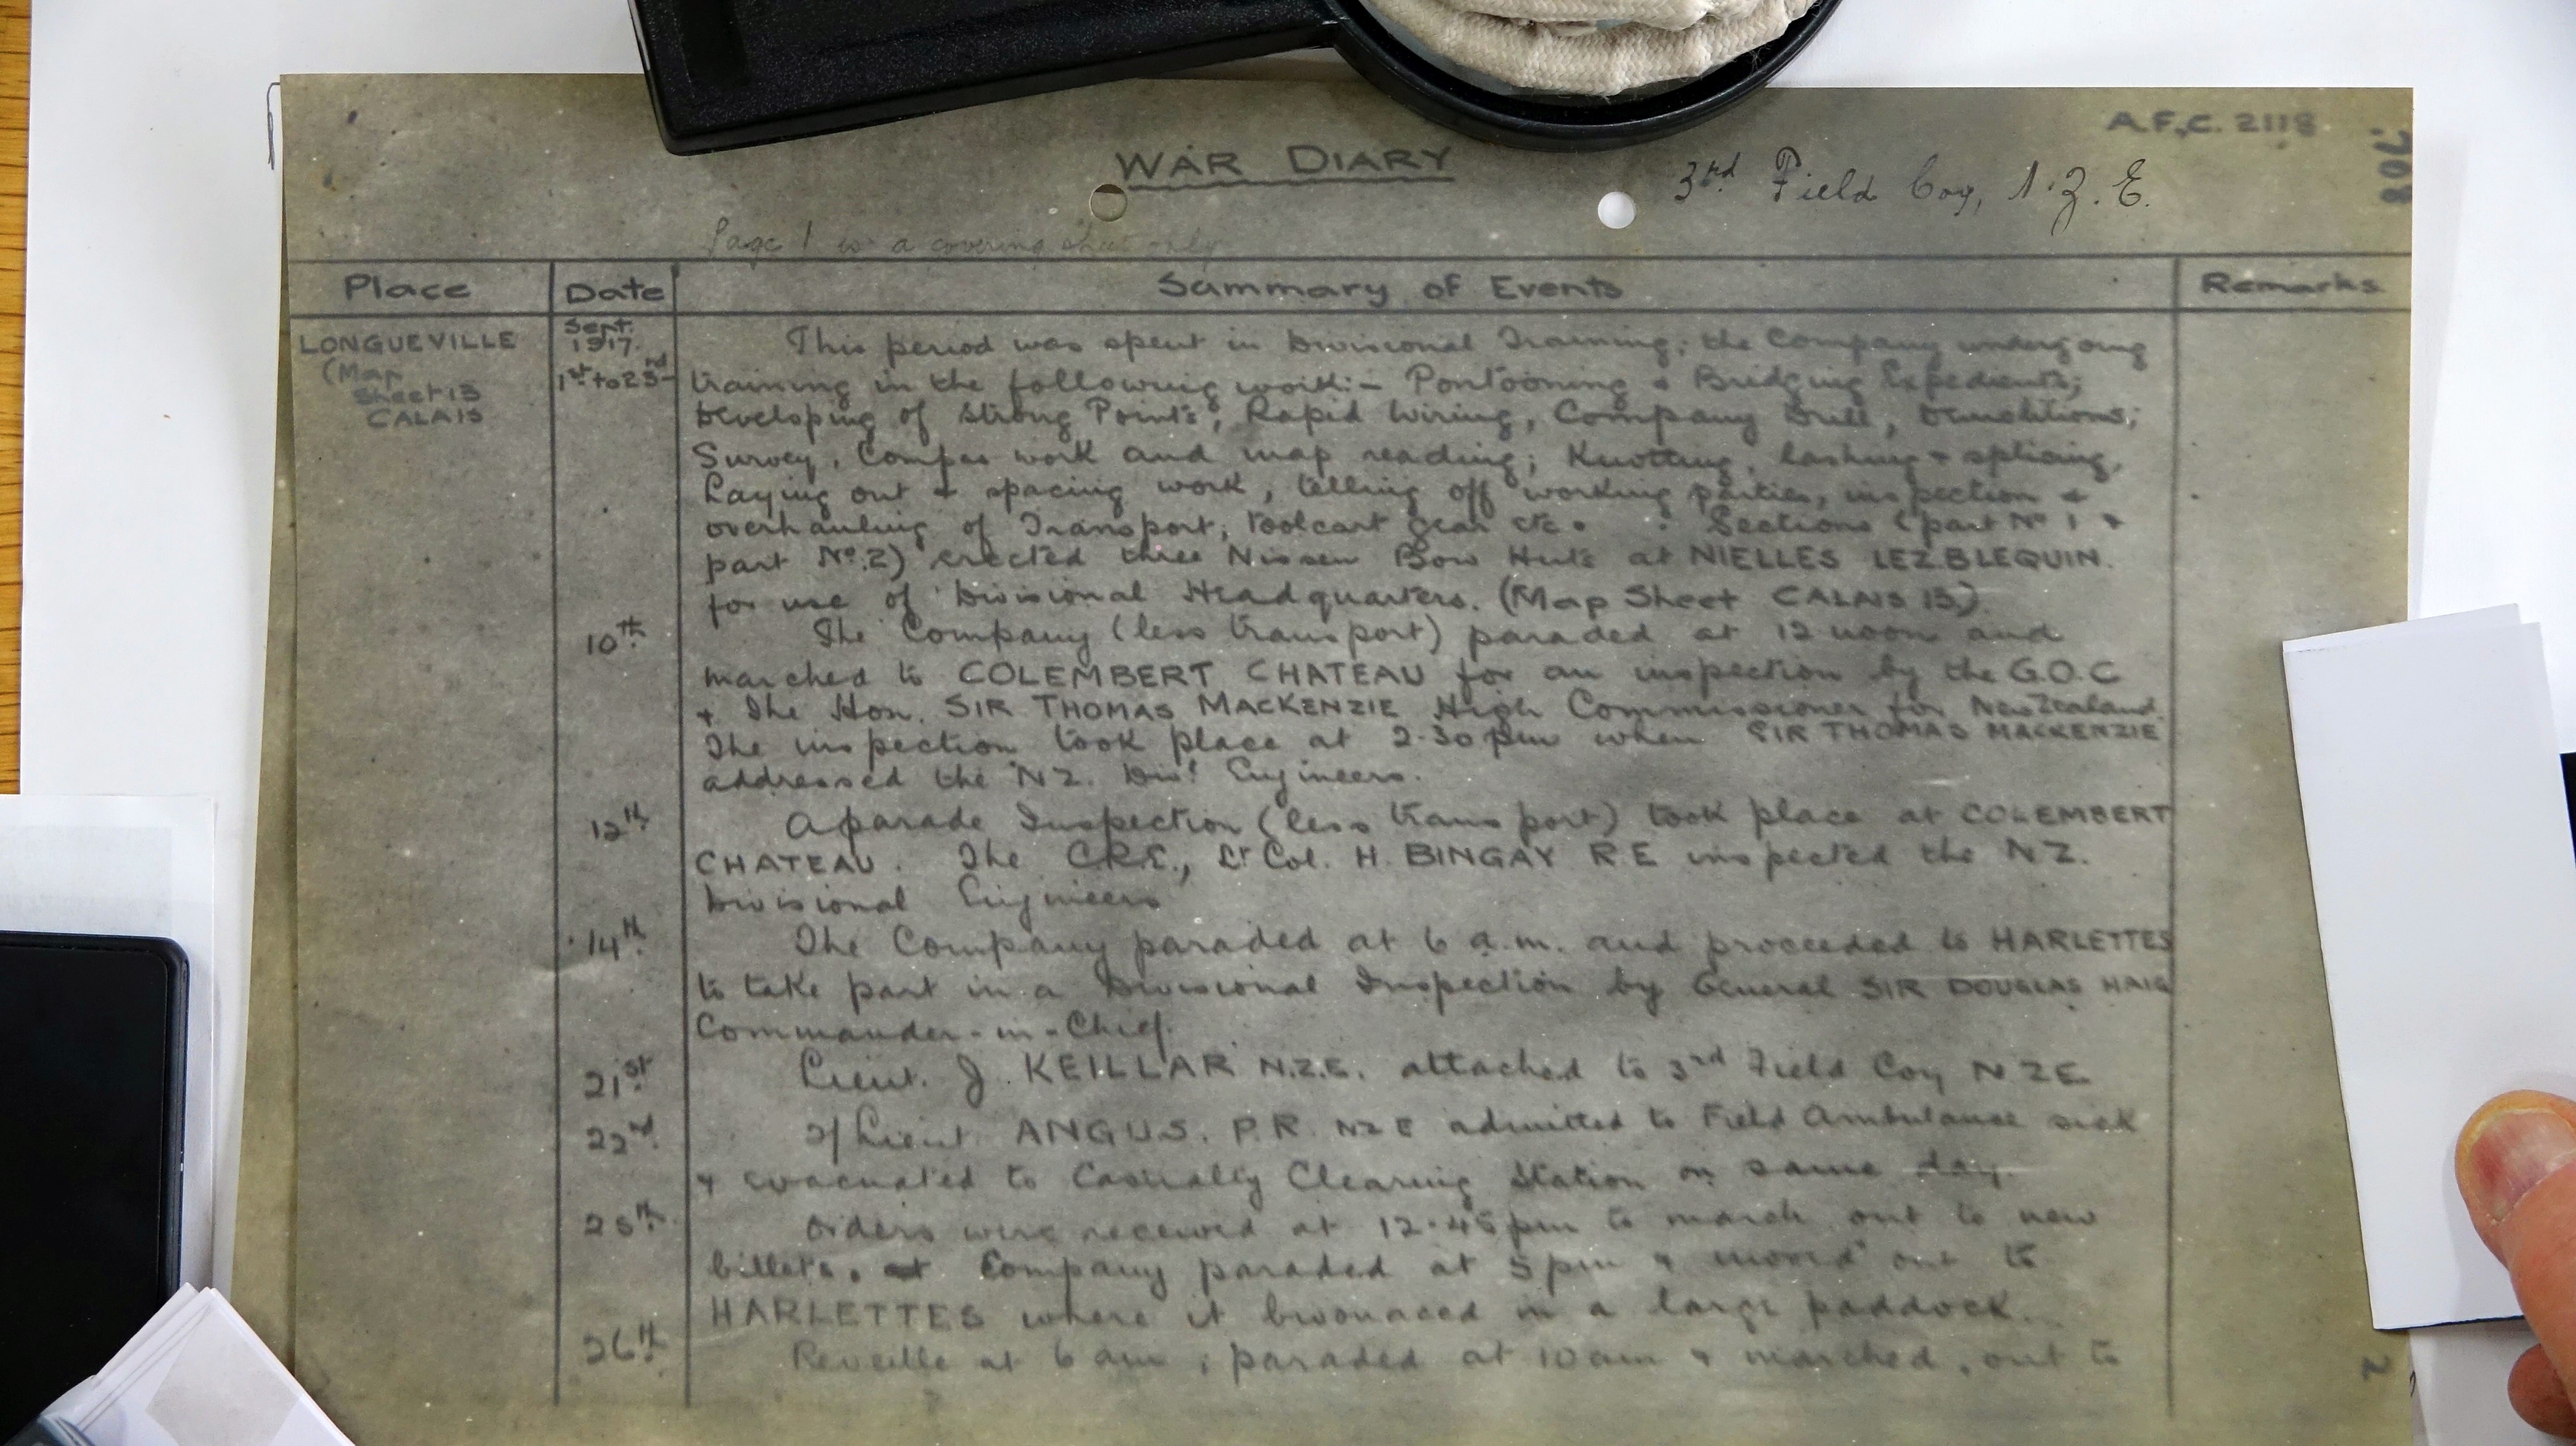 A.F.C. 2118
708
WAR DIARY
3rd Field Coy, N.Z.E.
Page 1 is a covering sheet only
Place Date Summary of Events Remarks
LONGUEVILLE
(Map
Sheet 13
CALAIS
Sept.
1917.
1st to 25th
This period was spent in Divisional Training; the Company undergoing
training in the following work:- Pontooning & Bridging Expedients;
Developing of Strong Points; Rapid Wiring, Company Drill, Demolitions;
Survey, Compas work and map reading; Knotting, lashing & splicing,
Laying out & spacing work, telling off working parties, inspection &
overhauling of Transport, toolcart gear etc. Sections (part No 1 &
part No. 2) erected three Nissen Bow Huts at NIELLES LEZ BLEQUIN.
for use of Divisional Headquarters. (Map Sheet CALAIS 13.)
10th. The Company (less transport) paraded at 12 noon and
marched to COLEMBERT CHATEAU for an inspection by the G.O.C
& The Hon. SIR THOMAS MACKENZIE High Commissioner for New Zealand.
The inspection took place at 2.30 pm when SIR THOMAS MACKENZIE
addressed the N.Z. Divl Engineers.
12th. A parade Inspection (less transport) took place at COLEMBERT
CHATEAU. The C.R.E., Lt Col. H. BINGAY R.E inspected the N.Z.
Divisional Engineers
14th. The Company paraded at 6 a.m. and proceeded to HARLETTES
to take part in a Divisional Inspection by General SIR DOUGLAS HAIG
Commander-in-Chief.
21st. Lieut. J. KEILLAR N.Z.E. attached to 3rd Field Coy N.Z.E.
22nd. 2/Lieut ANGUS. P.R. NZE admitted to Field Ambulance sick
& evacuated to Casualty Clearing Station on same day.
25th. Orders were received at 12.45 pm to march out to new
billets. Company paraded at 5 pm & moved out to
HARLETTES where it bivouaced in a large paddock.
26th. Reveille at 6 am, paraded at 10 am & marched out to
2